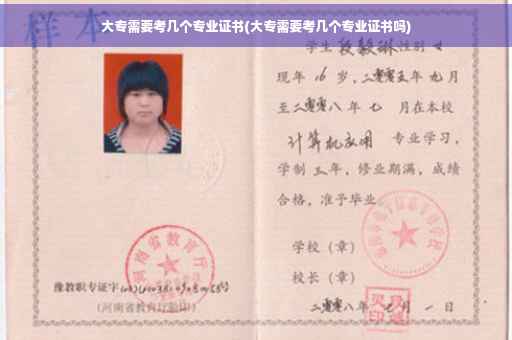 大专需要考几个专业证书(大专需要考几个专业证书吗)
样本
学生 段毅琳 性别 女
现年 16 岁，二零零五年 九月
至二零零八年 七 月在本校
计算机应用 专业学习，
学制 三 年，修业期满，成绩
合格，准予毕业
学校（章）
校长（章）
二零零八年 七 月 一 日
河南省教育厅
豫教职专证字
(河南省教育厅验印)